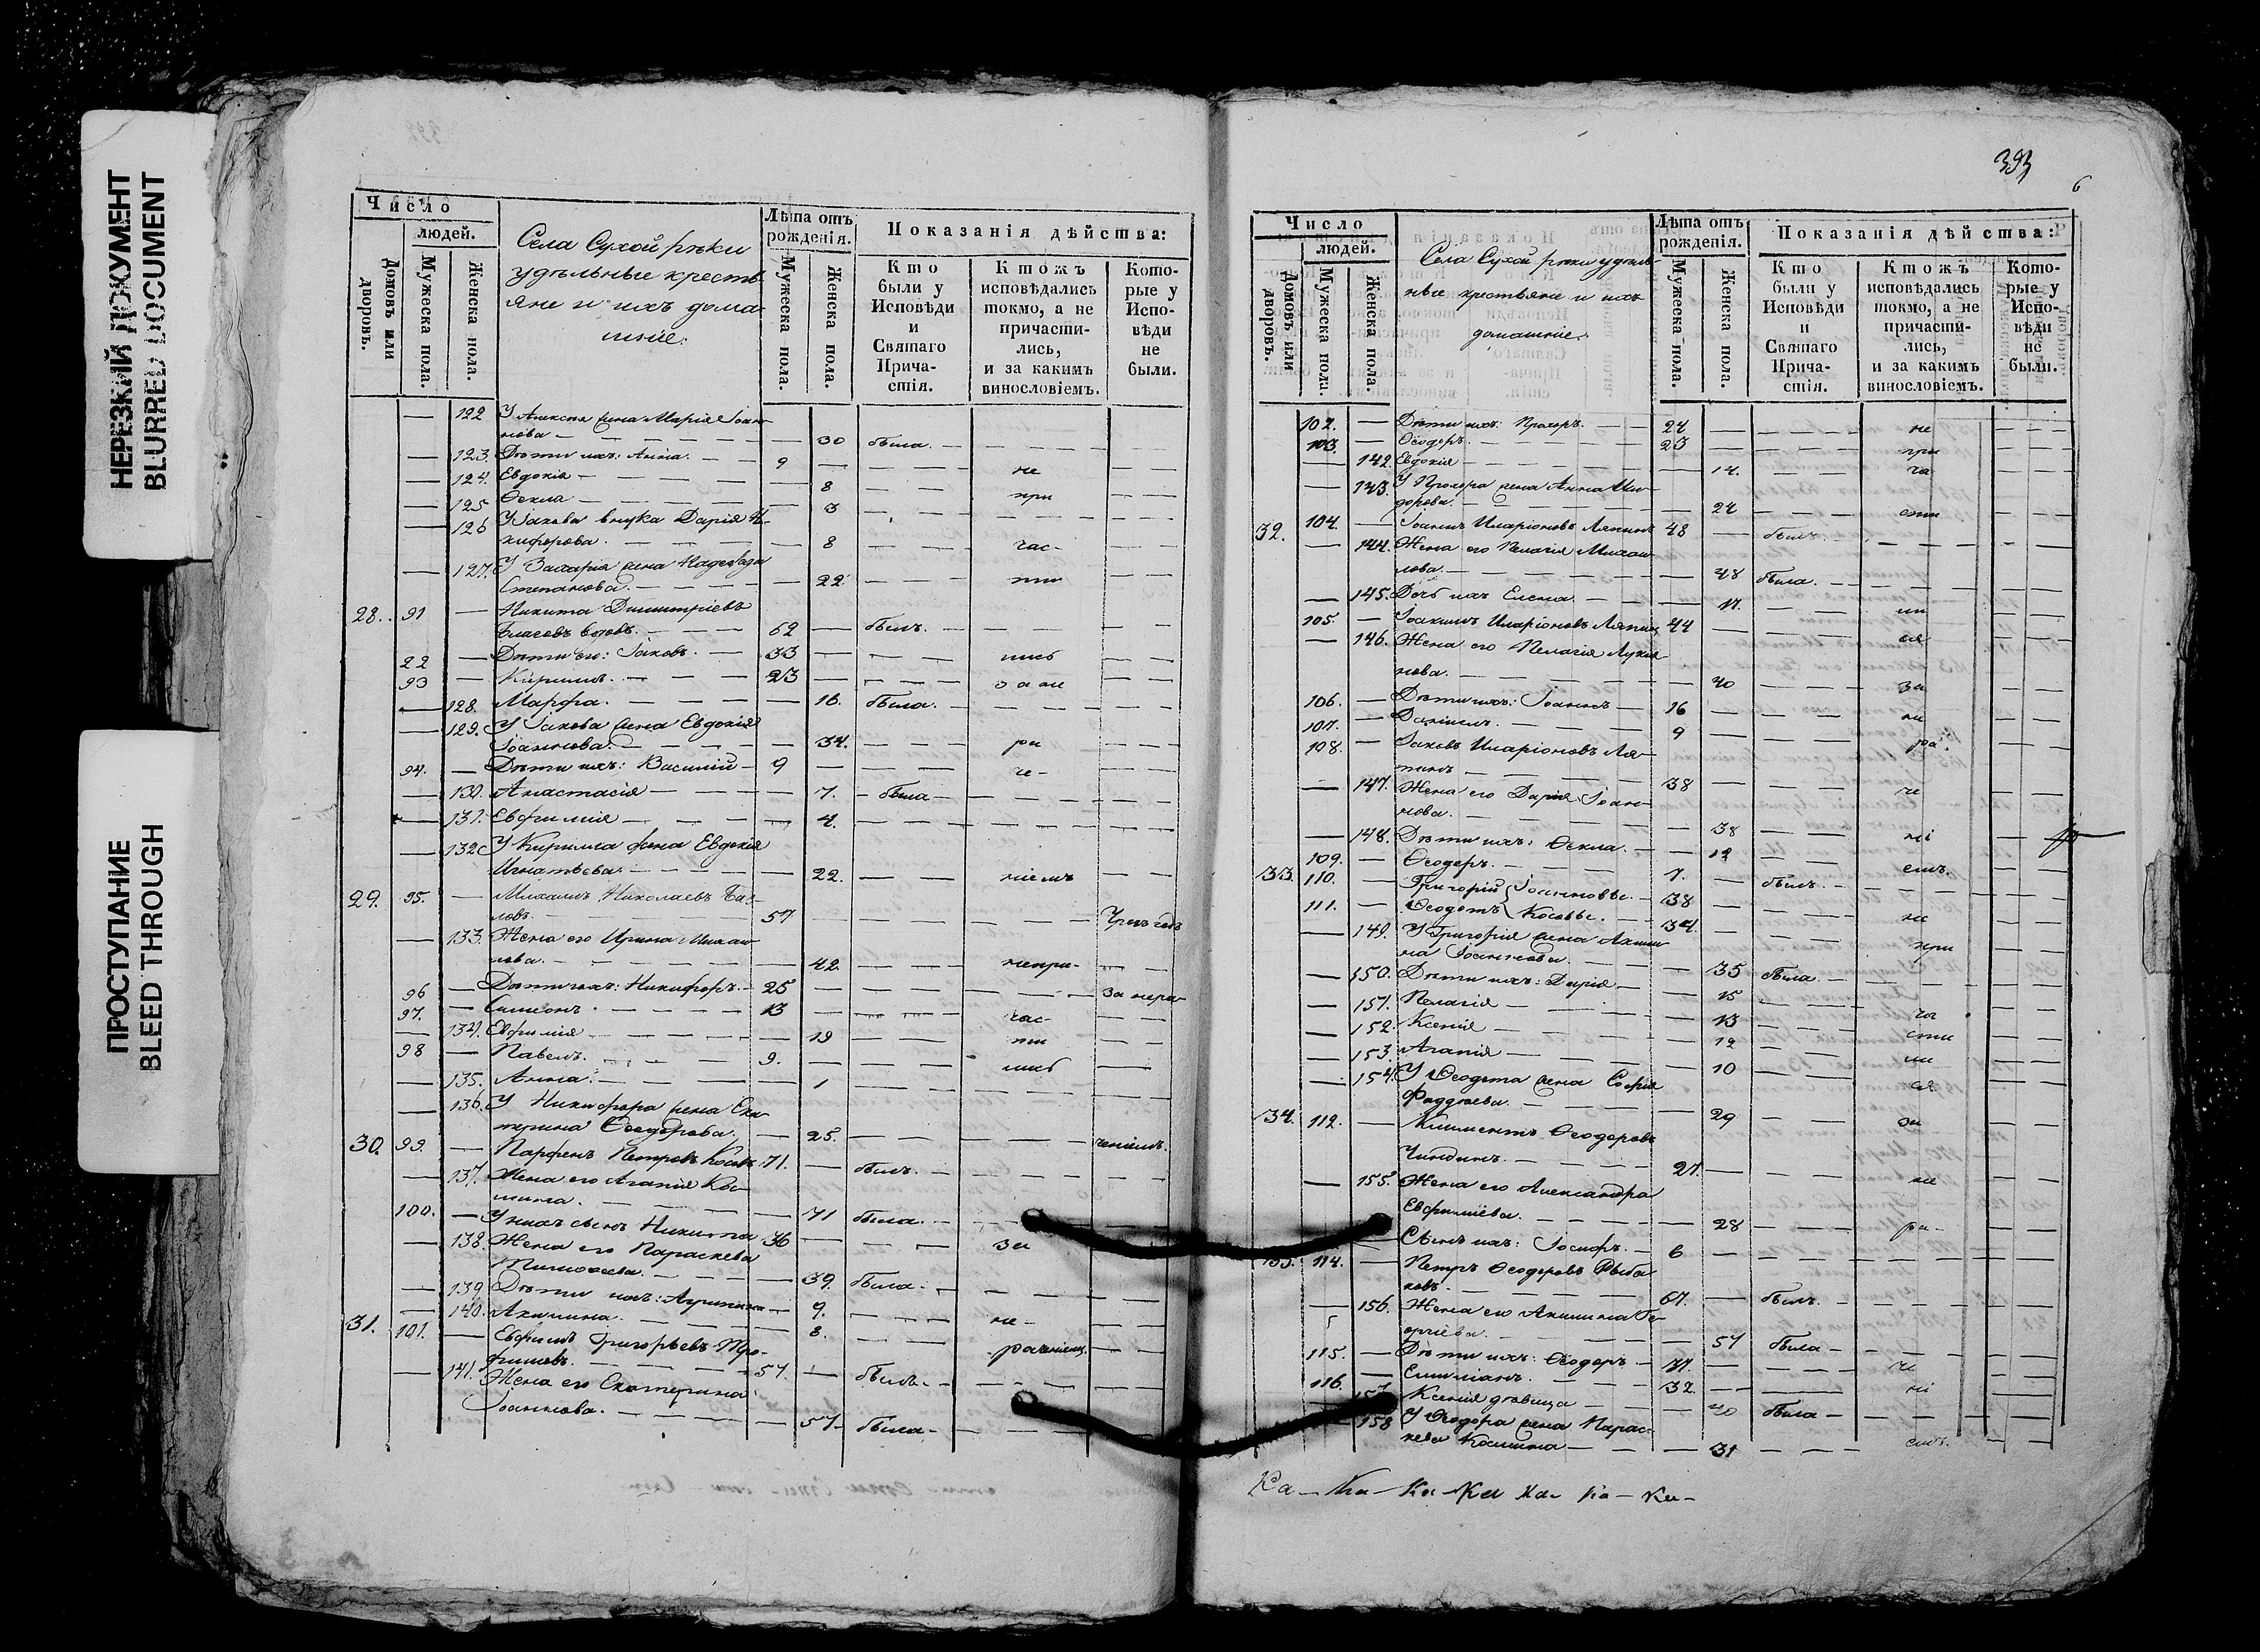 НЕРЕЗКИЙ ДОКУМЕНТ
BLURRED DOCUMENT
ПРОСТУПАНИЕ
BLEED THROUGH
Число
людей.
Домовъ или дворовъ.
Мужеска пола.
Женска пола.
Села Сухой рѣки
удѣльные кресть-
яне и ихъ дома-
шніе.
Лѣта отъ рожденія.
Мужеска пола.
Женска пола.
Показанія дѣйства:
Кто были у Исповѣди и Святаго Прича-стія.
Ктожъ исповѣдались токмо, а не причасти-лись, и за какимъ винословіемъ.
Кото-рые у Испо-вѣди не были.
— 122 У Алексѣя жена Марія Іоан-
нова — 30 была.
— 123. Дѣти ихъ: Анна. — 9
— 124. Евдокія — 8 не
— 125 Ѳекла — 3 при
— 126 У Іакова внука Дарія Ни-
кифорова. — 8 час-
— 127. У Захарія жена Надежда
Степанова. — 22 ти
28. 91 — Никита Димитріевъ
вдовъ. — 62 — былъ.
22 — Дѣти его: Іаковъ. — 33 лись
93 — Кириллъ. — 23 — за не
— 128. Марфа. — 16. была.
— 129. У Іакова жена Евдокія
Іоаннова. — 34. ра
94. — Дѣти ихъ: Василій — 9 че-
— 130. Анастасія — 7. — была —
— 131. Евфимія — 4.
— 132 У Кирилла жена Евдокія
Игнатьева. — 22. ніемъ
29. 95. — Михаилъ Николаевъ
57
— 133. Жена его Ирина Михаи-
лова. — 42. непри-
96 — Дѣти ихъ: Никифоръ. — 25 — за нера-
97. — Симеонъ. — 13 час-
— 134. Евфимія — 19 ти
98 — Павелъ. — 9. лись
— 135. Анна. — 1
— 136. У Никифора жена Ека-
терина Ѳеодорова. — 25. ченіемъ.
30. 99. — Парфенъ Петровъ Косовъ 71. — былъ.
— 137. Жена его Агапія Кос-
мина. — 71 была.
100. — У нихъ сынъ Никита 36 за
— 138. Жена его Параскева
Тимоѳеева. — 39. была.
— 139. Дѣти ихъ: Агрипина — 9.
— 140. Акилина. — 8. не-
31. 101. — Евфимъ Григорьевъ Тро-
фимовъ. — 57. — былъ.
— 141. Жена его Екатерина
Іоаннова. — 57. была.
393
6
Число
людей.
Домовъ или дворовъ.
Мужеска пола.
Женска пола.
Села Сухой рѣки удѣль-
ные крестьяне и ихъ
домашніе.
Лѣта отъ рожденія.
Мужеска пола.
Женска пола.
Показанія дѣйства:
Кто были у Исповѣди и Святаго Прича-стія.
Ктожъ исповѣдались токмо, а не причасти-лись, и за какимъ винословіемъ.
Кото-рые у Испо-вѣди не были.
102. — Дѣти ихъ: Прохоръ. — 24 не
103. — Ѳеодоръ. — 23 при
— 142. Евдокія — 14. ча
— 143. У Прохора жена Анна Иси-
дорова. — 24 сти
32. 104. — Іоаннъ Иларіоновъ Ляпинъ 48 — былъ.
— 144. Жена его Пелагія Михаи-
лова. — 48 была.
— 145. Дочь ихъ Елена. — 17. ли
105. — Іоакимъ Иларіоновъ Ляпинъ 44 ся
— 146. Жена его Пелагія Лукія-
нова. — 40 за
106. — Дѣти ихъ: Іоаннъ — 16 не
107. — Даніилъ. — 9 ра.
108. — Іаковъ Иларіоновъ Ля-
пинъ — 38 че
— 147. Жена его Дарія Іоан-
нова. — 38 ні
— 148. Дѣти ихъ: Ѳекла. — 12
109. — Ѳеодоръ. — 7. емъ.
33. 110. — Григорій Іоанновы. — 38 былъ.
111. — Ѳеодотъ Косовы. — 34. не
— 149. У Григорія жена Акили-
на Іоаннова. — 35 была при
— 150. Дѣти ихъ: Дарія — 15
— 151. Пелагія — 13 ча
— 152. Ксенія — 12 сти
— 153. Агапія — 10 ли
— 154. У Ѳеодота жена Софія
Фаддѣева. — 29 за
34. 112. — Климентъ Ѳеодоровъ
27. не
— 155. Жена его Александра
Евфиміева. — 28 ра-
Сынъ ихъ: Іосифъ. — 6
114. — Петръ Ѳеодоровъ Рыба-
ковъ. — 67. — былъ.
— 156. Жена его Акилина Ге-
оргіева. — 57 была —
115. — Дѣти ихъ: Ѳеодоръ — че
116. — Емиліанъ. — 32. ні
157. Ксенія дѣвица — 20 была —
158 У Ѳеодора жена Парас-
кева Космина — 31 емъ.
Ка — Ка — Ка — Ка На — На — Ка —